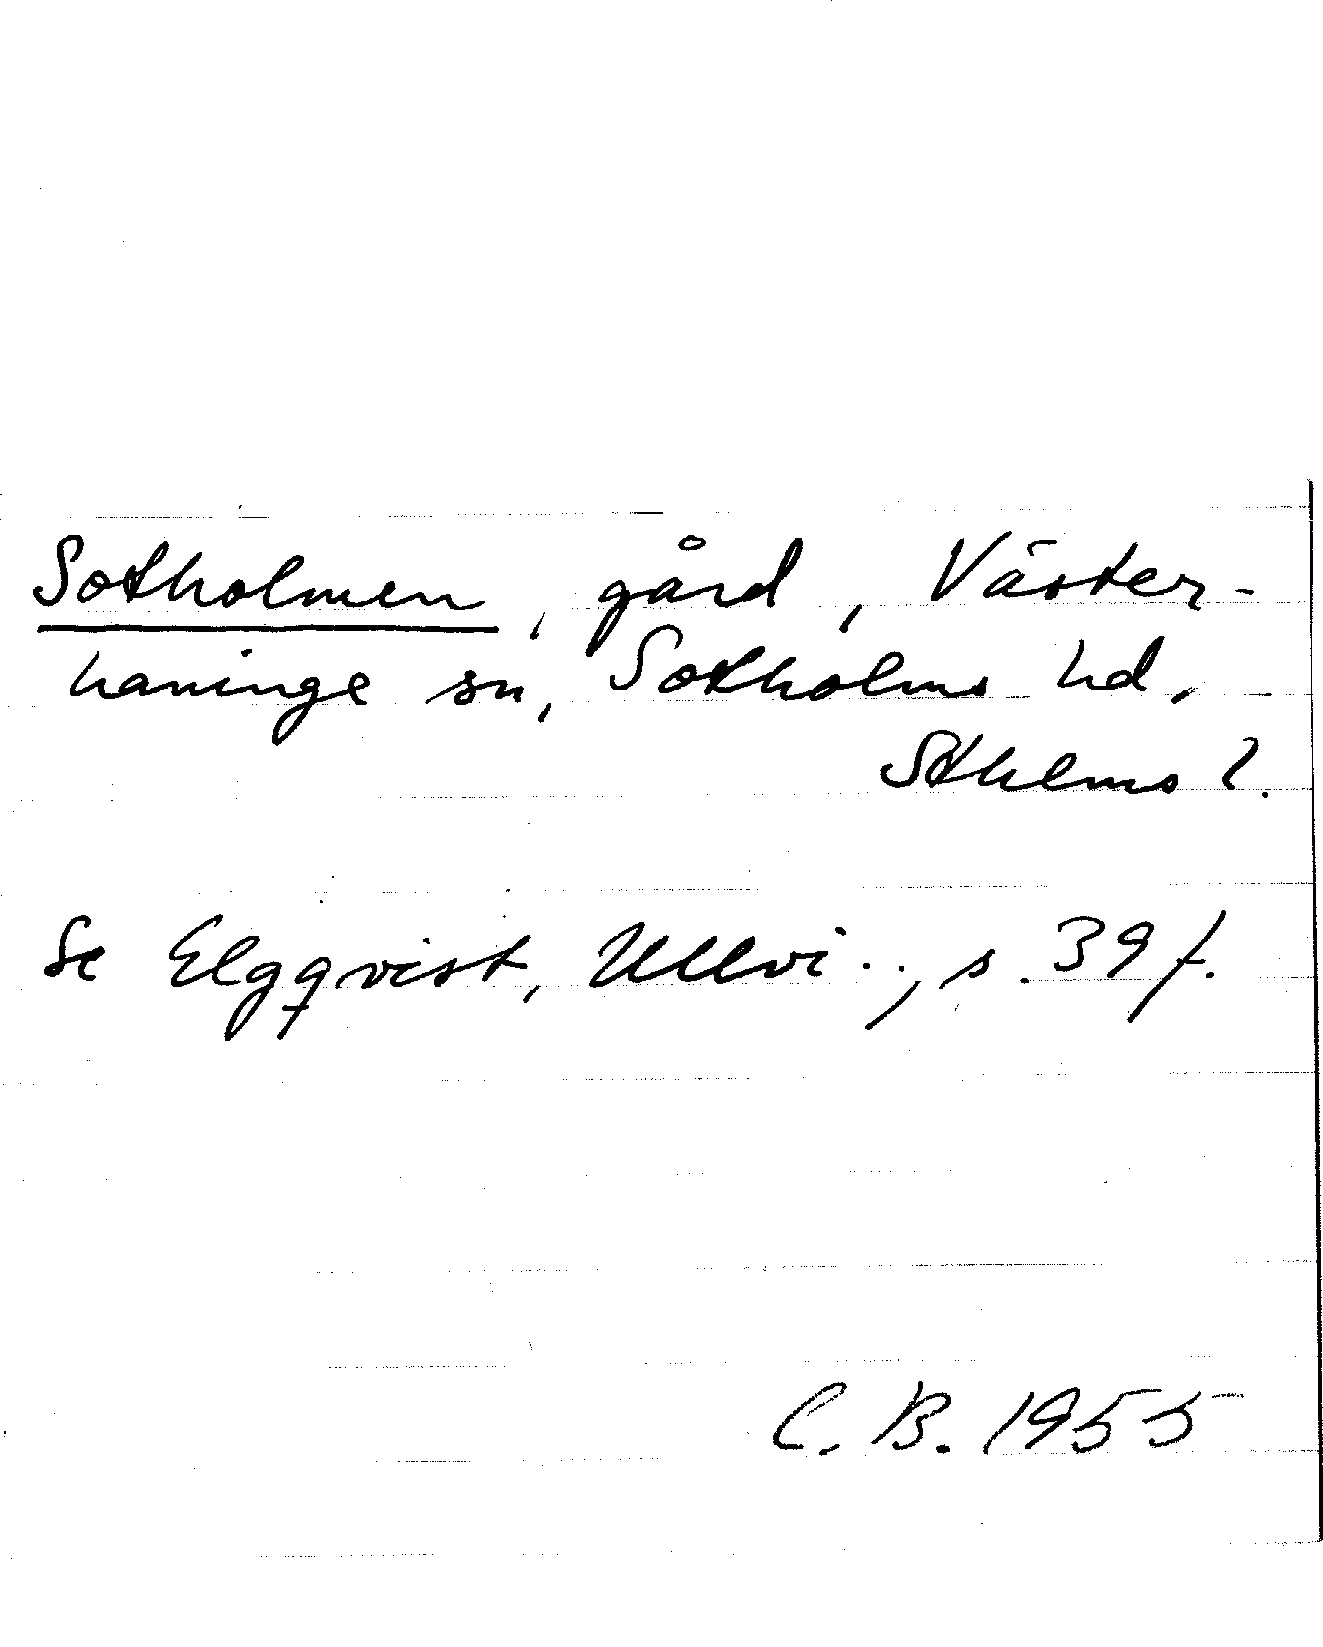 Sotholmen, gård, Väster-
haninge sn, Sotholms hd,
Sthlms l.
Se Elgqvist, Ullvi.., s. 39 f.
C. B. 1955